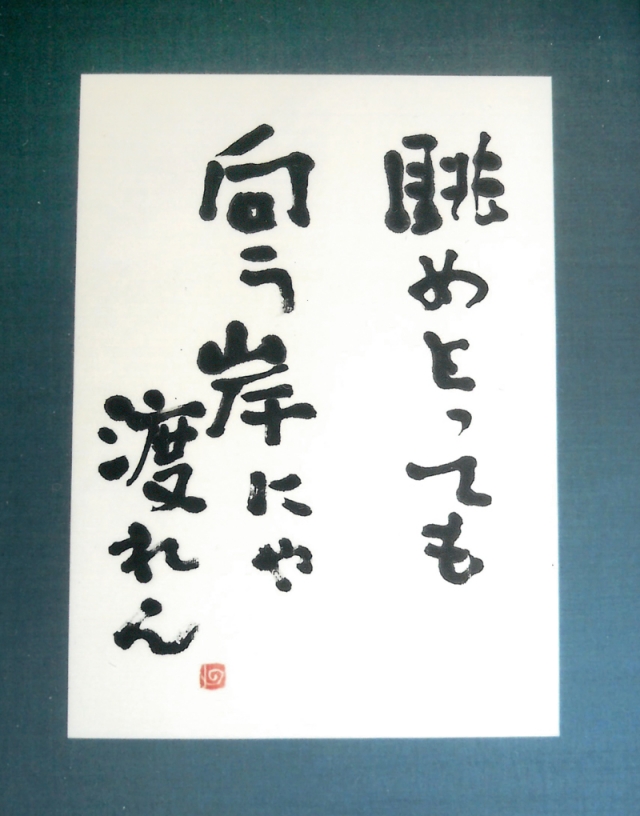 眺めとっても
向う岸にや
渡れん